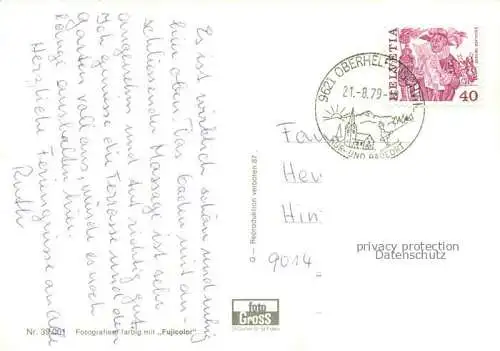 Es ist wirklich schön und ruhig
hier oben. Das Baden mit an-
schliessender Massage ist sehr
angenehm und tut richtig gut.
Ich geniesse die Terrasse und den
Garten voll aus, würde es noch
lange aushalten hier.
Herzliche Feriengrüsse an Alle
Ruth
9621 OBERHEL
21.-8.79-
KUR- UND
HELVETIA
40
Fam
Hei
Hin
9014
privacy protection
Datenschutz
© – Reproduktion verboten 87
foto
Gross
Nr. 39 001 Fotografiert farbig mit „Fujicolor"